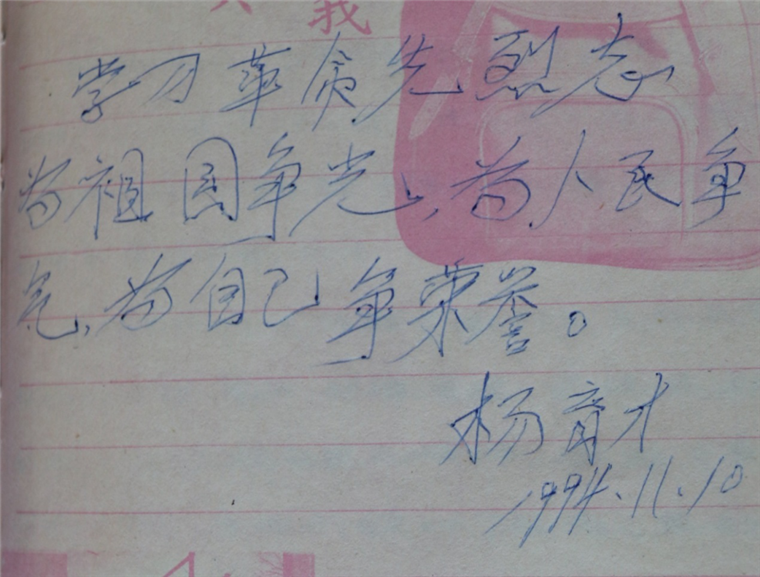 学习革命先烈志
为祖国争光，为人民争
气，为自己争荣誉。
杨育才
1994.11.10